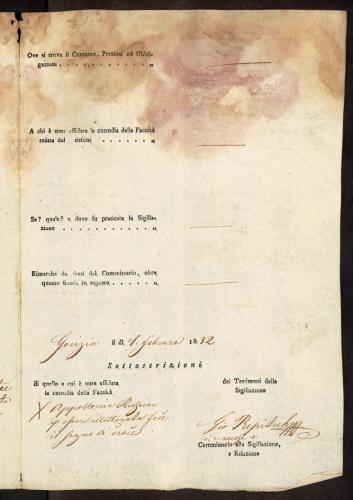 Ove si trova il Contante, Preziosi ed Obbli-
gazioni . . . . . . . . . . . „
A chi è stata affidata la custodia della Facoltà
relitta dal defunto . . . . . . „
Se? quale? e dove fu praticata la Sigilla-
zione . . . . . . . . . . . „
Rimarche da farsi dal Commissario, oltre
quanto finora fu esposto. . . . . . „
Gorizia il dì 4. Febbraro 1832
Sottoscrizioni
di quello a cui è stata affidata
la custodia della Facoltà
dei Testimoni della
Sigillazione
X Appollonia
p essere illetterata fece
il segno di croce
Gio
Commissario alla Sigillazione,
e Relazione